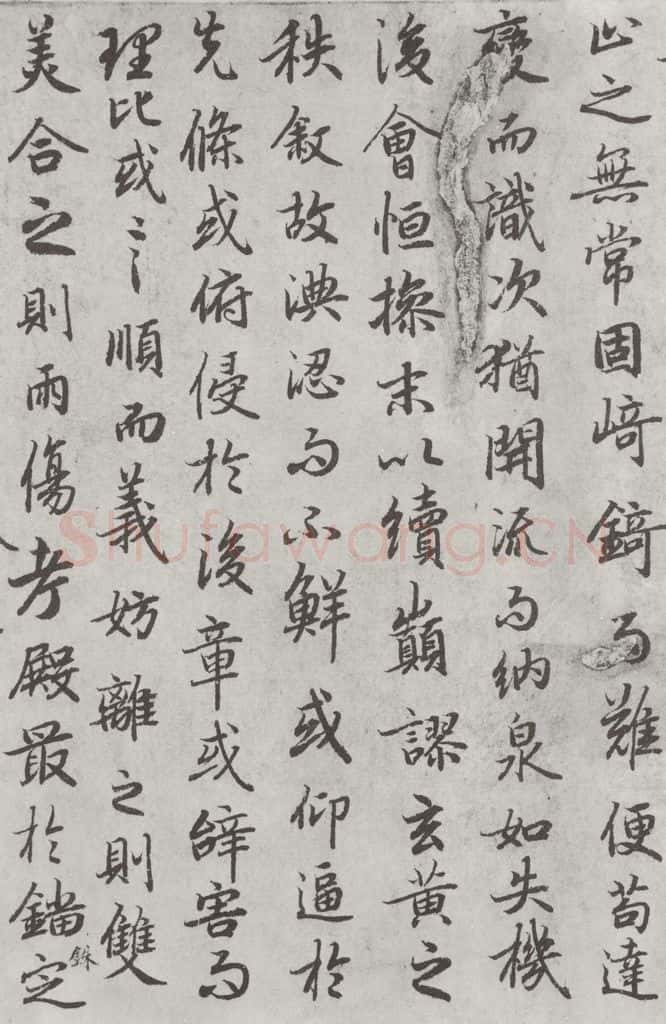 止之無常固崎錡而難便苟達
變而識次猶開流而納泉如失機
後會恒操末以續巔謬玄黃之
秩敘故淟涊而不鮮或仰逼於
先條或俯侵於後章或辭害而
理比或言順而義妨離之則雙
美合之則兩傷考殿最於錙銖定
Shufawang.CN